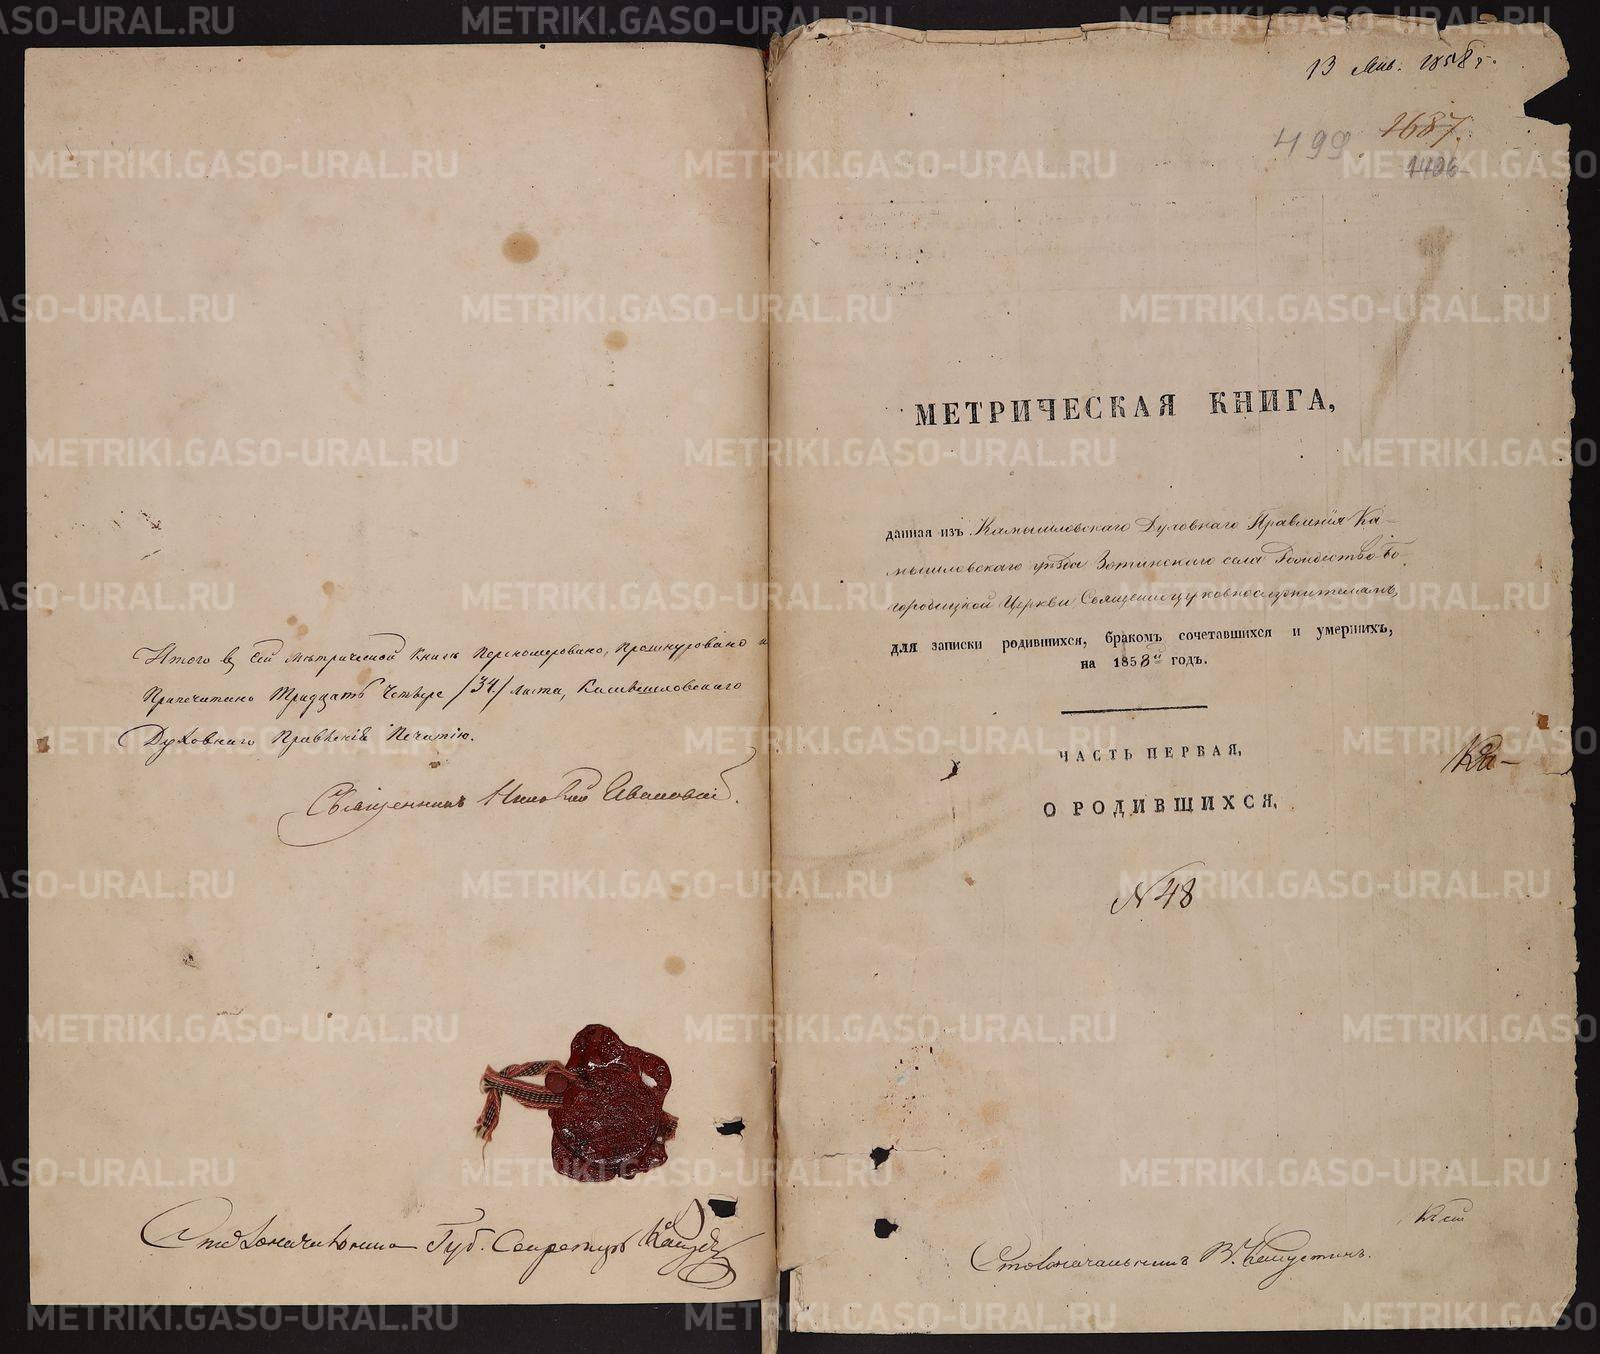 Итого в сей метрической книге перенумеровано, прошнуровано и
припечатано тридцать четыре /34/ листа, Камышловского
Духовнаго Правленія печатію.
Священник Ивановский.
Столоначальник Губ. Секретарь
13 Янв. 1858 г.
499
1687.
1406
МЕТРИЧЕСКАЯ КНИГА,
данная изъ Камышловскаго Духовнаго Правленія Ка-
мышловскаго уѣзда Зотинскаго села Рождество-Бо-
городицкой Церкви Священноцерковнослужителямъ,
для записки родившихся, бракомъ сочетавшихся и умершихъ,
на 1858й годъ.
ЧАСТЬ ПЕРВАЯ,
О РОДИВШИХСЯ.
N 48
Ка-
Столоначальникъ В. Капустинъ.
METRIKI.GASO-URAL.RU